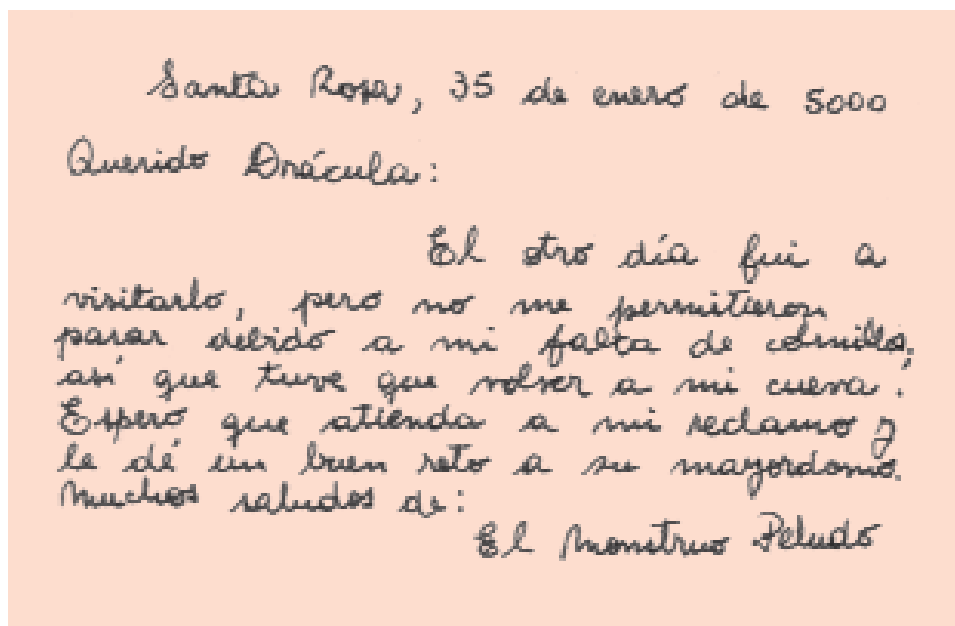 Santa Rosa, 35 de enero de 5000
Querido Drácula:
El otro día fui a
visitarlo, pero no me permitieron
pasar debido a mi falta de colmillos,
así que tuve que volver a mi cueva.
Espero que atienda a mi reclamo y
le dé un buen reto a su mayordomo.
Muchos saludos de:
El Monstruo Peludo